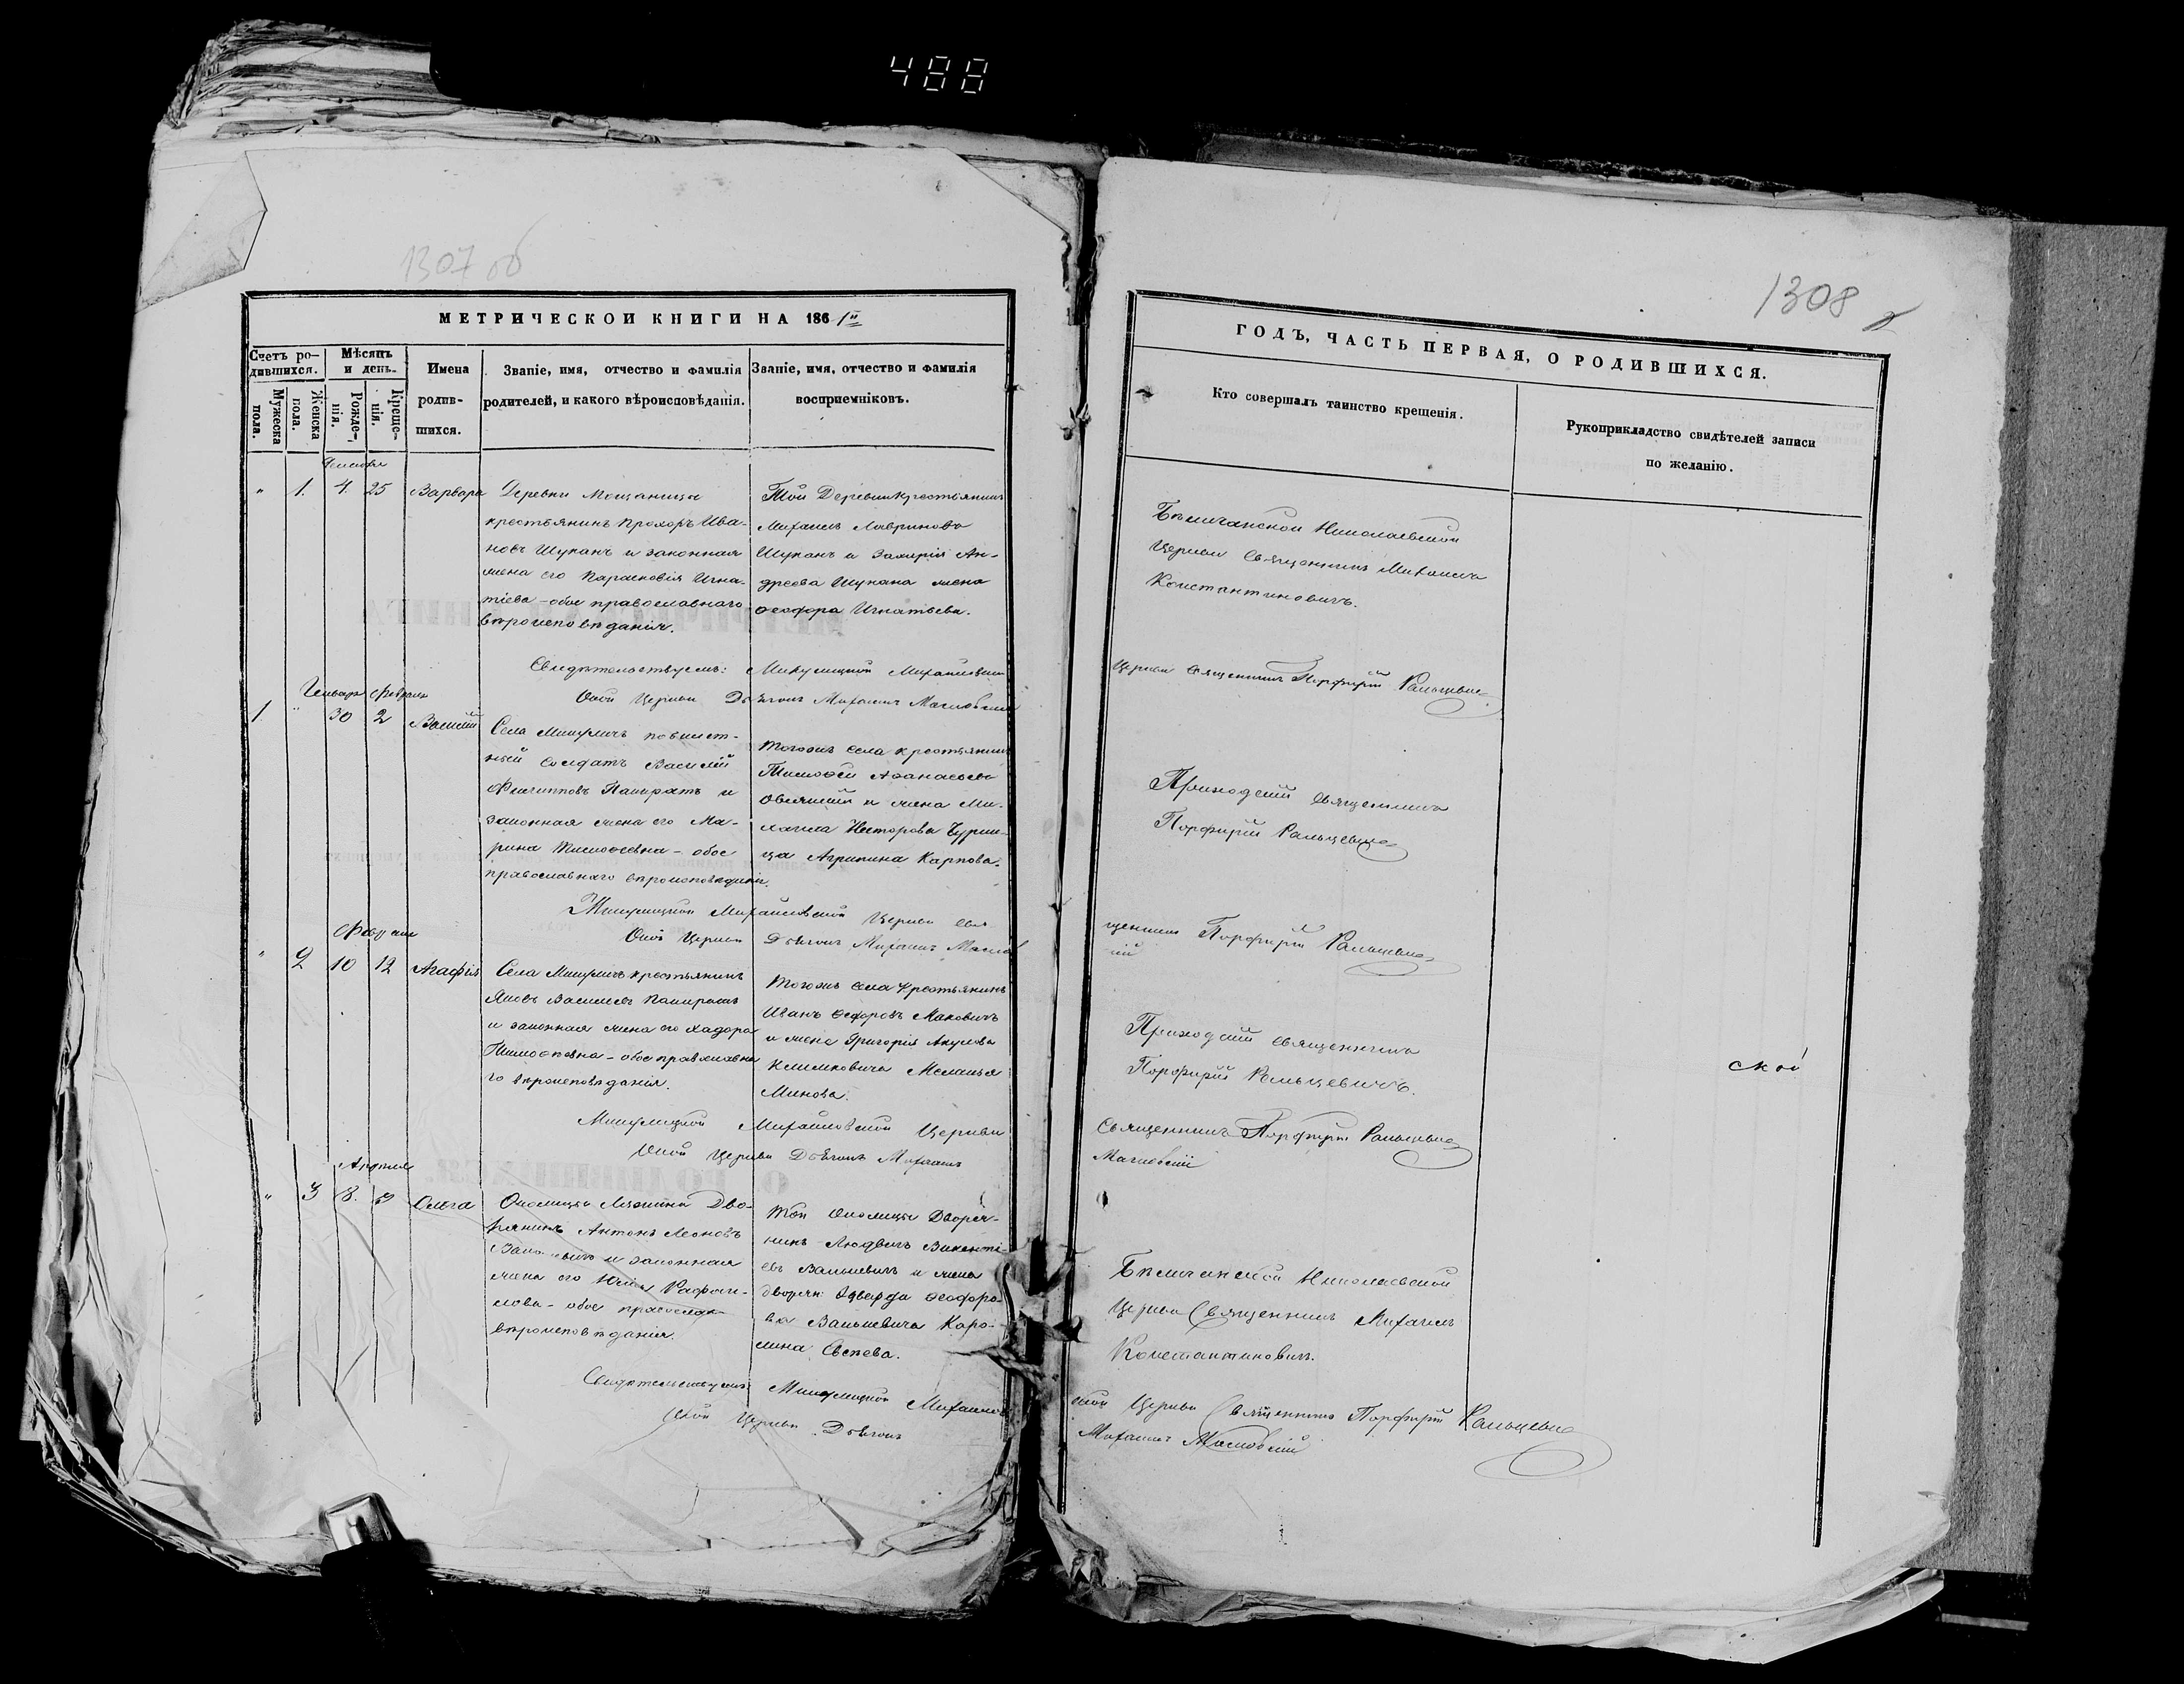 488
1307 об
МЕТРИЧЕСКОЙ КНИГИ НА 1861й
Счетъ ро-
дившихся.
Мѣсяцъ
и день.
Имена
родив-
шихся.
Званіе, имя, отчество и фамилія
родителей, и какого вѣроисповѣданія.
Званіе, имя, отчество и фамилія
воспріемніковъ.
Мужеска
пола.
Женска
пола.
Рожде-
нія.
Креще-
нія.
" 1. 4. 25 Варвара
Деревни Мощаница
крестьянинъ Прохоръ Ива-
новъ Шупанъ и законная
жена его Парасковія Игна-
тіева - обое православнаго
вѣроисповѣданія.
Той Деревни крестьянинъ
Михаилъ Лавриновъ
Шупанъ и Захарія Ан-
дреева Шупана жена
Ѳеодора Игнатьева.
Свидѣтельствуемъ: Микулицкой Михайловской
Оной Церкви Дьячокъ Михаилъ
Генварь Февраля
1 " 30 2 Василій
Села Микуличъ
солдатъ Василій
Филипповъ Панкратъ и
законная жена его Ма-
рина Тимоѳеевна - обое
православнаго вѣроисповѣданія.
Тогожъ села крестьянинъ
Тимоѳей Аѳанасьевъ
и жена Ми-
хаила Несторова
Агрипина Карпова.
Микулицкой Михайловской Церкви свя
Оной Церкви Дьячокъ Михаилъ
Февраля
" 2 10 12 Агафія
Села Микуличъ крестьянинъ
Яковъ Васильевъ Панкратъ
и законная жена его Хадора
Тимоѳеевна - обое православна
го вѣроисповѣданія.
Тогожъ села крестьянинъ
Иванъ Ѳедоровъ Маковичъ
и жена Григорія Акулова
Климковича Меланья
Минова.
Микулицкой Михайловской Церкви
Оной Церкви Дьячокъ Михаилъ
Апреля
" 3 8. 9 Ольга
Околицы Дво-
рянинъ Антонъ Леоновъ
и законная
жена его Юлія Рафаи-
лова - обое
вѣроисповѣданія.
Той Околицы Дворя-
нинъ Людвигъ Викенті-
евъ и жена
дворян: Эдварда Ѳеодоро-
ва Каро-
лина
Свидѣтельствуемъ: Микулицкой Михайлов
Оной Церкви Дьячокъ
1308
ГОДЪ, ЧАСТЬ ПЕРВАЯ, О РОДИВШИХСЯ.
Кто совершалъ таинство крещенія.
Рукоприкладство свидѣтелей записи
по желанію.
Николаевской
Церкви Священникъ Михаилъ
Константиновичъ.
Церкви Священникъ Порфирій
Приходскій Священникъ
Порфирій
щенникъ Порфирій
Приходскій Священникъ
Порфирій
ской
Священникъ Порфирій
Николаевской
Церкви Священникъ Михаилъ
Константиновичъ.
ской Церкви Священникъ Порфирій
Михаилъ